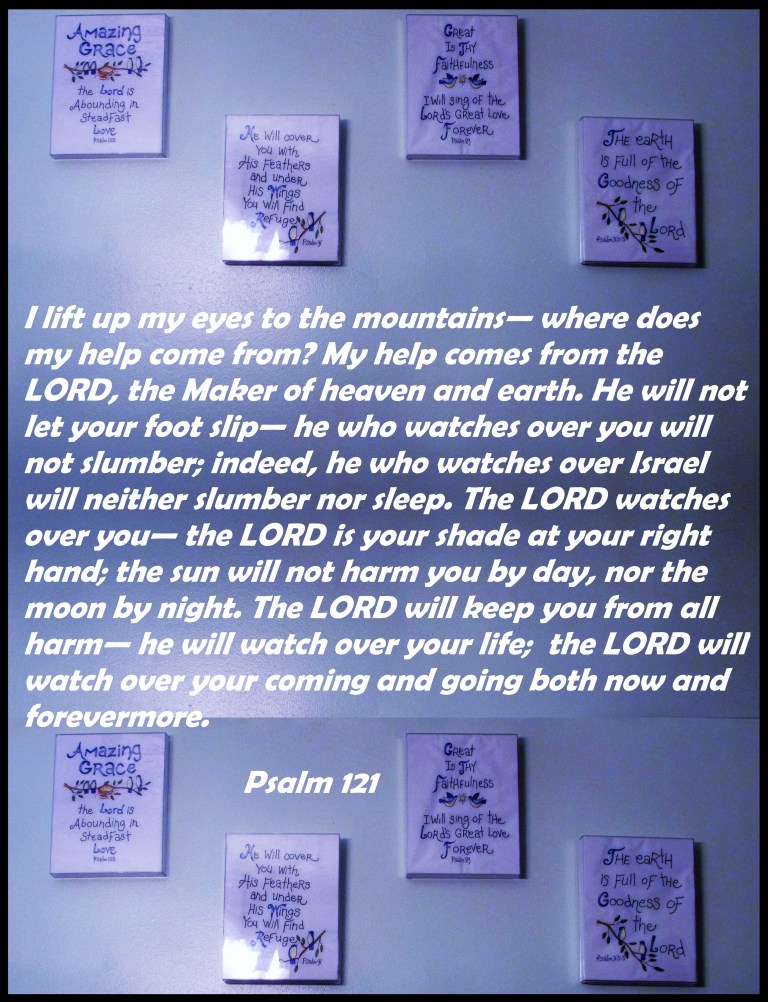 Amazing
Grace
the Lord is
Abounding in
Steadfast
Love
Psalm
He Will cover
You With
His Feathers
and under
His Wings
You Will Find
Refuge
Psalm
Great
Is Thy
Faithfulness
I Will sing of the
Lord's Great Love
Forever
Psalm
The earth
is Full of the
Goodness of
the
Lord
Psalm
I lift up my eyes to the mountains— where does
my help come from? My help comes from the
LORD, the Maker of heaven and earth. He will not
let your foot slip— he who watches over you will
not slumber; indeed, he who watches over Israel
will neither slumber nor sleep. The LORD watches
over you— the LORD is your shade at your right
hand; the sun will not harm you by day, nor the
moon by night. The LORD will keep you from all
harm— he will watch over your life; the LORD will
watch over your coming and going both now and
forevermore.
Psalm 121
Amazing
Grace
the Lord is
Abounding in
Steadfast
Love
Psalm
He Will cover
You With
His Feathers
and under
His Wings
You Will Find
Refuge
Psalm
Great
Is Thy
Faithfulness
I Will sing of the
Lord's Great Love
Forever
Psalm
The earth
is Full of the
Goodness of
the
Lord
Psalm